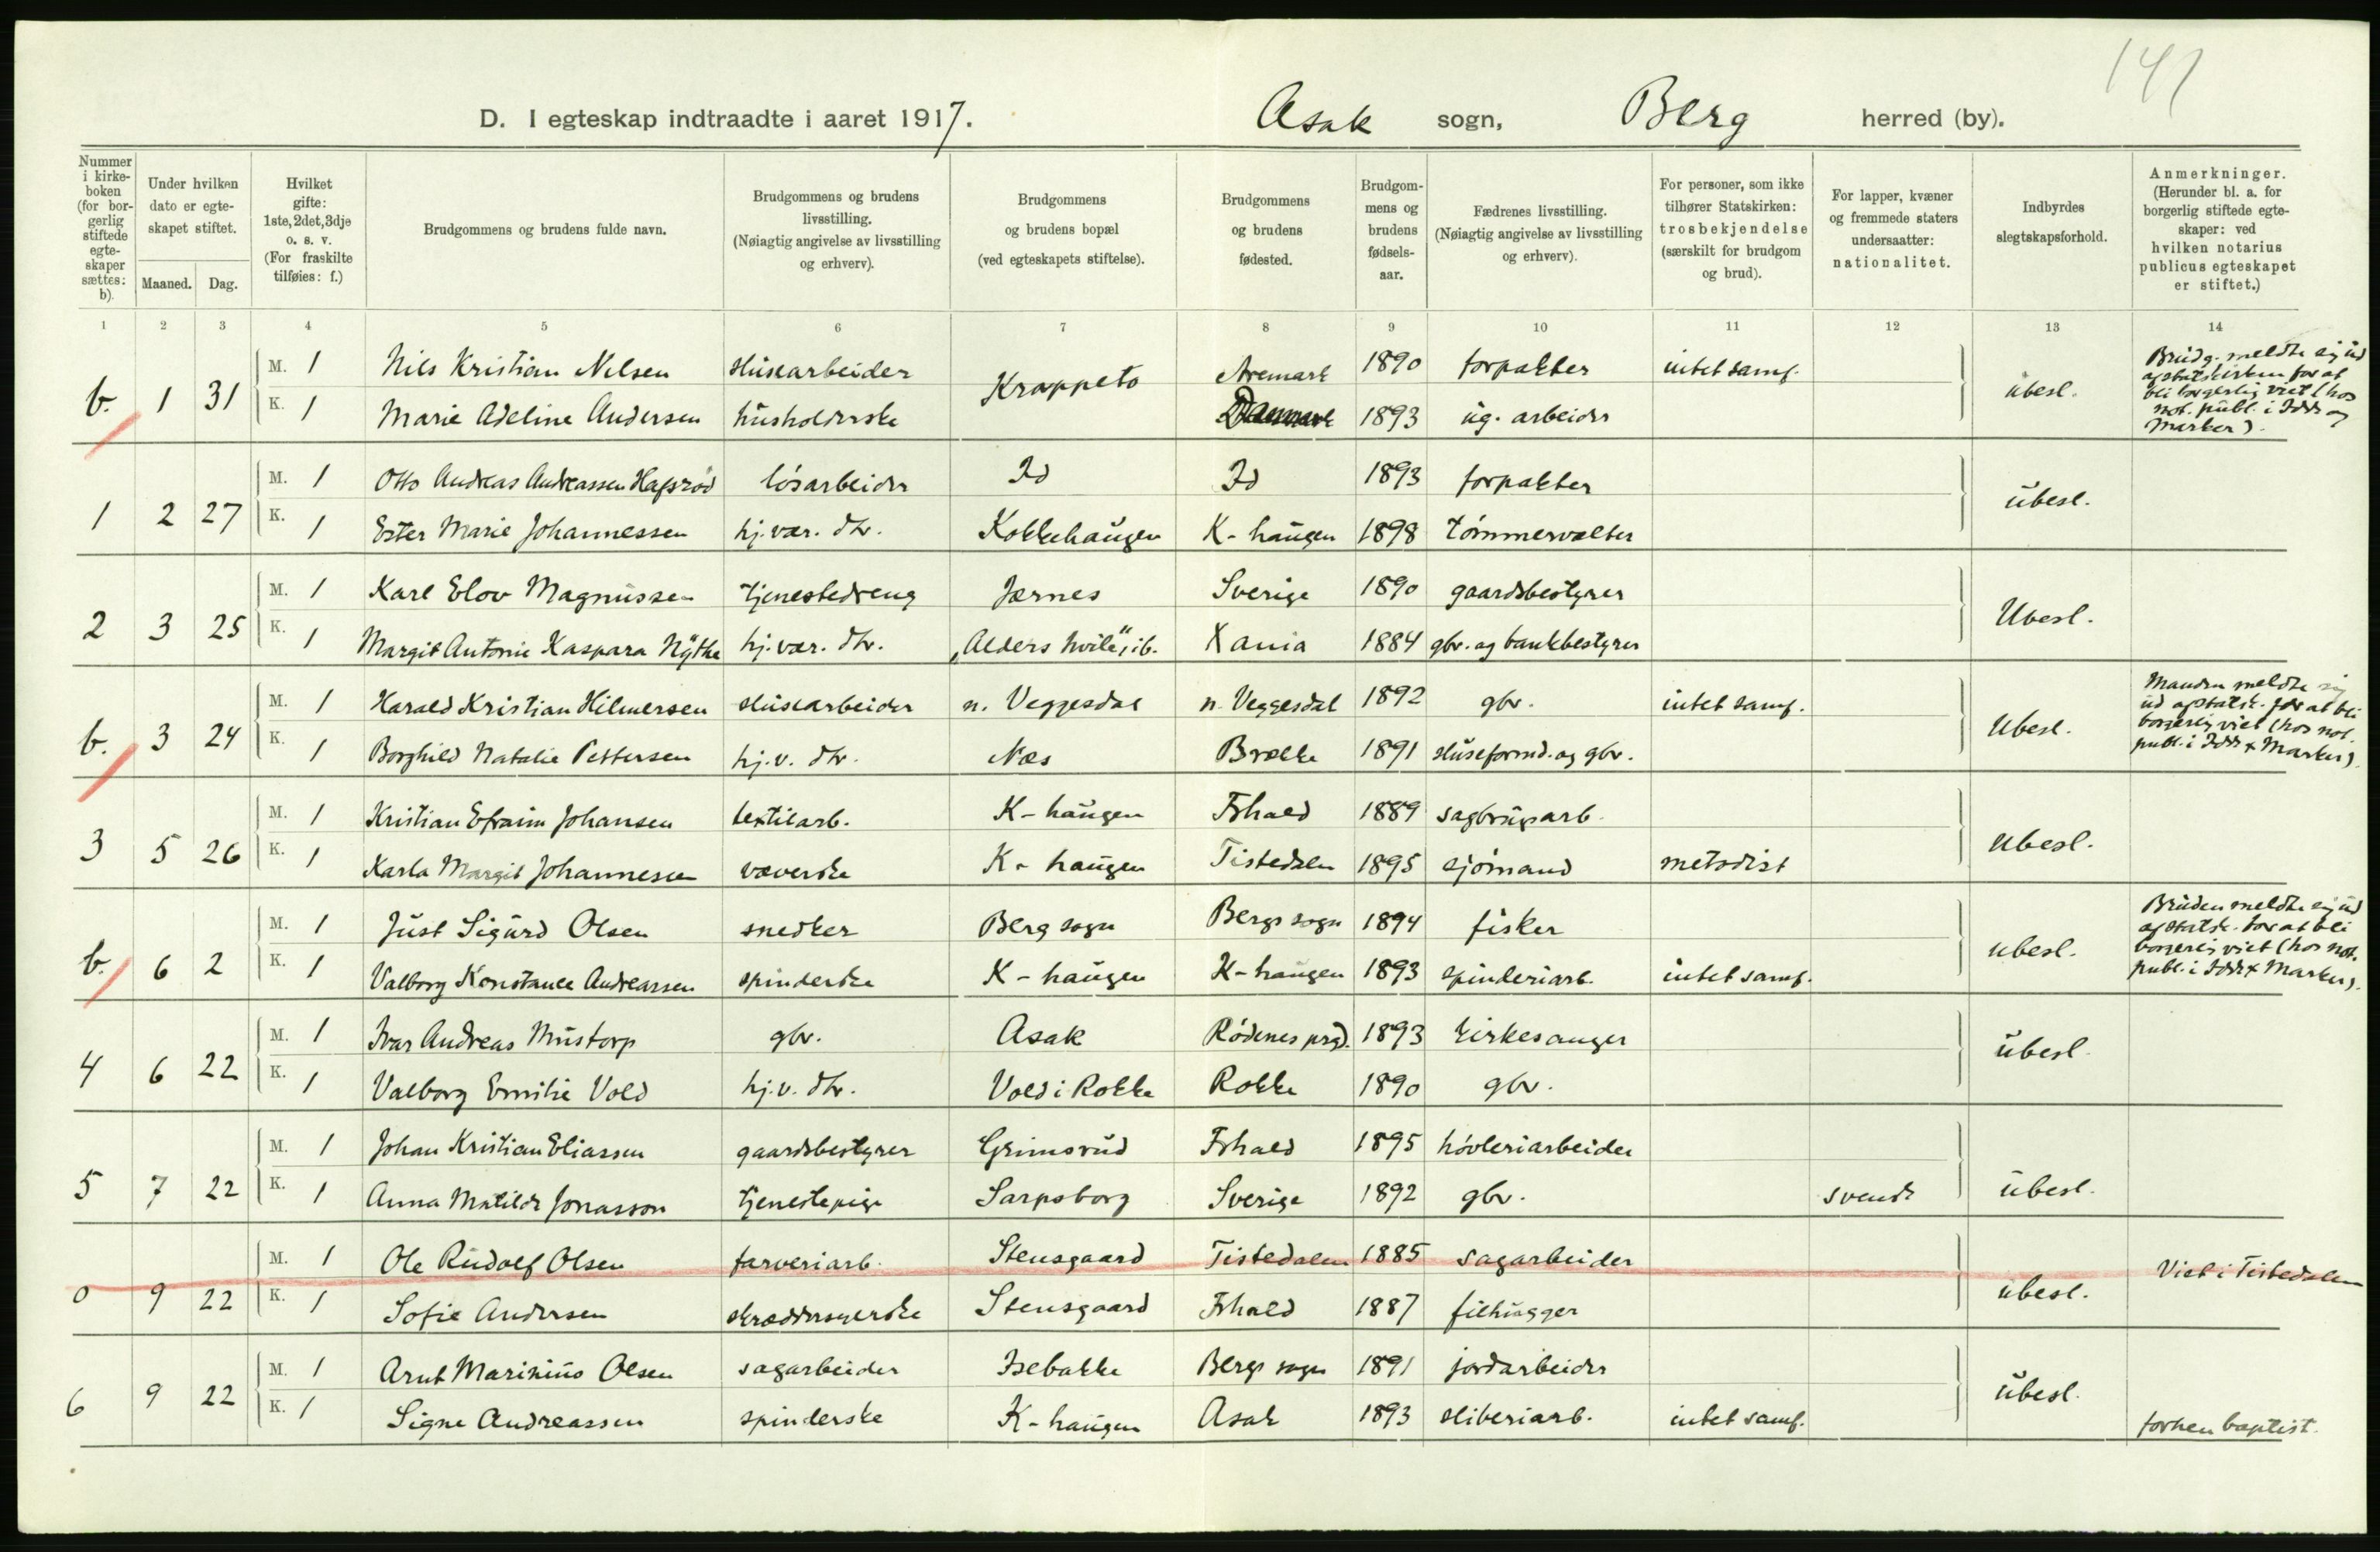 141
D. I egteskap indtraadte i aaret 1917. Asak sogn, Berg herred (by).
Nummer i kirke-boken (for bor-gerlig stiftede egte-skaper sættes: b).
Under hvilken dato er egte-skapet stiftet.
Maaned. Dag.
Hvilket gifte: 1ste, 2det, 3dje o. s. v. (For fraskilte tilføies: f.)
Brudgommens og brudens fulde navn.
Brudgommens og brudens livsstilling. (Nøiagtig angivelse av livsstilling og erhverv).
Brudgommens og brudens bopæl (ved egteskapets stiftelse).
Brudgommens og brudens fødested.
Brudgom-mens og brudens fødsels-aar.
Fædrenes livsstilling. (Nøiagtig angivelse av livsstilling og erhverv).
For personer, som ikke tilhører Statskirken: trosbekjendelse (særskilt for brudgom og brud).
For lapper, kvæner og fremmede staters undersaatter: nationalitet.
Indbyrdes slegtskapsforhold.
Anmerkninger. (Herunder bl. a. for borgerlig stiftede egte-skaper: ved hvilken notarius publicus egteskapet er stiftet.)
1 2 3 4 5 6 7 8 9 10 11 12 13 14
b. 1 31 M. 1 Nils Kristian Nilsen slusearbeider Krappeto Aremark 1890 forpakter intet samf. ubesl. Brudg. meldte sig ud af statskirken for at bli borgerlig viet (hos not. publ. i Idd og Marker).
K. 1 Marie Adeline Andersen husholderske 1893 ug. arbeider
1 2 27 M. 1 Otto Andreas Andreassen Hafsrød løsarbeider Id Id 1893 forpakter ubesl.
K. 1 Ester Marie Johannessen hj. vær. dtr. Kokkehaugen K-haugen 1898 tømmervælter
2 3 25 M. 1 Karl Elov Magnussen tjenestedreng Jernes Sverige 1890 gaardsbestyrer Ubesl.
K. 1 Margit Antonie Kaspara hj. vær. dtr. "Alders hvile", ib. Kania 1884 gbr. og bankbestyrer
b. 3 24 M. 1 Harald Kristian Hilmersen slusearbeider n. Veggesdal n. Veggesdal 1892 gbr. intet samf. Ubesl. Manden meldte sig ud af statsk. for at bli borgerlig viet (hos not. publ. i Idd & Marker).
K. 1 Borghild Natalie Pettersen hj. v. dtr. Næs Brække 1891 sluseformd. og gbr.
3 5 26 M. 1 Kristian Efraim Johansen textilarb. K-haugen Frhald 1889 sagbrugsarb. ubesl.
K. 1 Karla Margit Johannesen væverske K-haugen Tistedalen 1895 sjømand metodist
b. 6 2 M. 1 Just Sigurd Olsen snedker Berg sogn Bergs sogn 1894 fisker ubesl. Bruden meldte sig ud af statsk. for at bli borgerlig viet (hos not. publ. i Idd & Marker).
K. 1 Valborg Konstance Andreassen spinderske K-haugen K-haugen 1893 spinderiarb. intet samf.
4 6 22 M. 1 Ivar Andreas Mustorp gbr. Asak Rødenes prgd. 1893 kirkesanger ubesl.
K. 1 Valborg Emilie Vold hj. v. dtr. Vold i Rokke Rokke 1890 gbr.
5 7 22 M. 1 Johan Kristian Eliassen gaardsbestyrer Grimsrud Frhald 1895 høvleriarbeider ubesl.
K. 1 Anna Matilde Jonasson tjenestepige Sarpsborg Sverige 1892 gbr. svensk
0 9 22 M. 1 Ole Rudolf Olsen farveriarb. Stensgaard Tistedalen 1885 sagarbeider ubesl. Viet i Tistedalen
K. 1 Sofie Andersen skræddersyerske Stensgaard Frhald 1887 filhugger
6 9 22 M. 1 Arnt Marinius Olsen sagarbeider Isebakke Bergs sogn 1891 jordarbeider ubesl.
K. 1 Signe Andreassen spinderske K-haugen Asak 1893 sliberiarb. intet samf. forhen baptist.